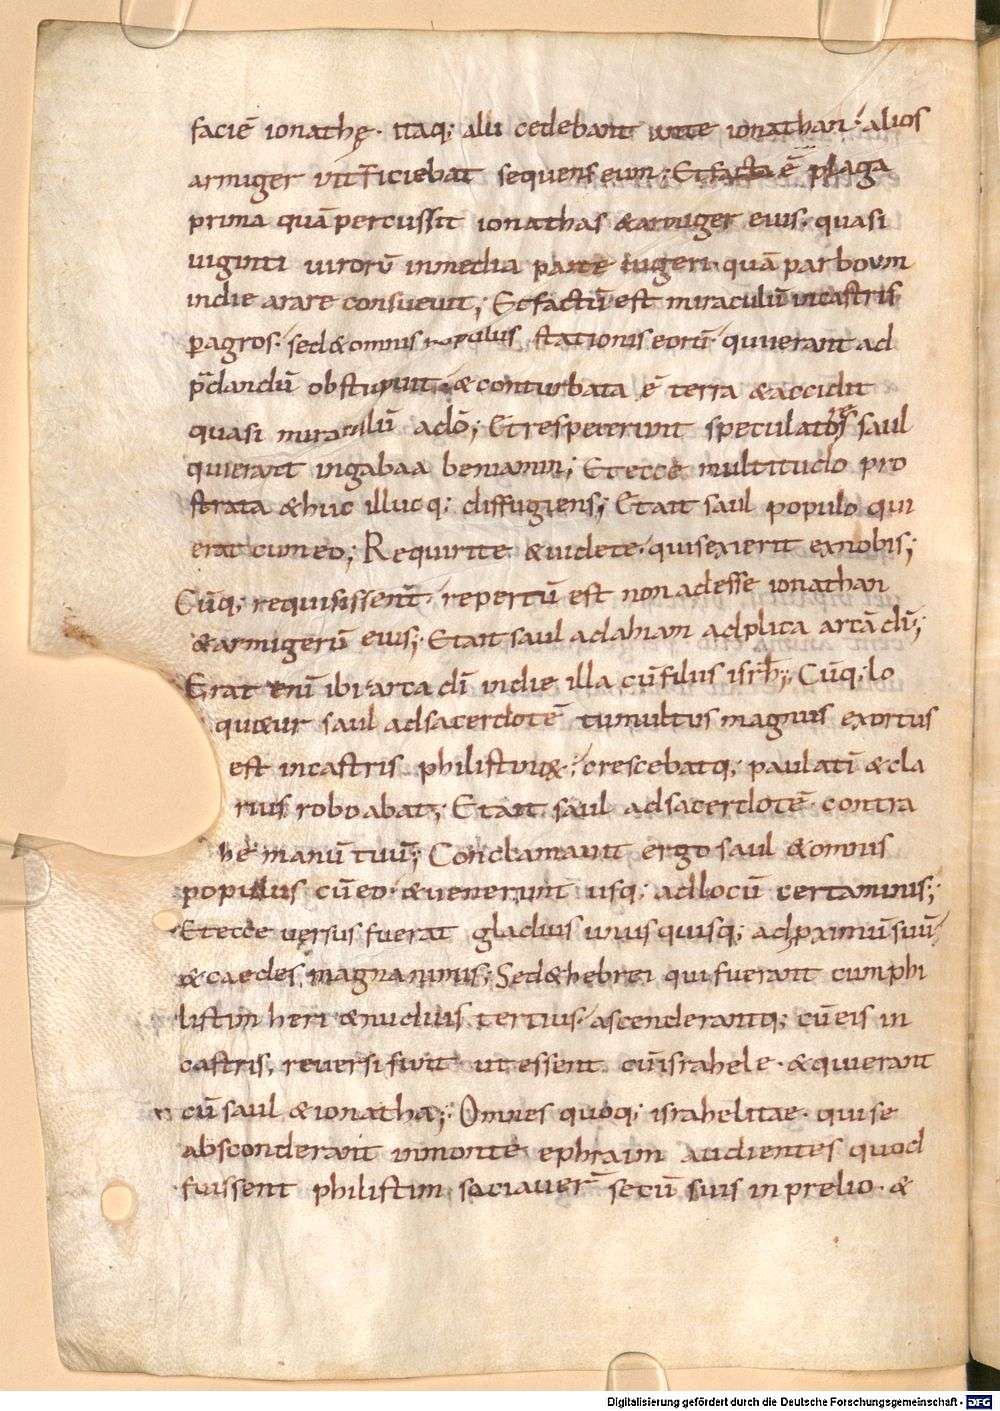 faciē ionathę· itaq; alii cedebant ante ionathan· alios
armiger int̄ficiebat sequens eum; Et facta ē plaga
prima quā percussit ionathas & armiger eius· quasi
uiginti uirorū in media parte iugeri· quā par boum
in die arare consueuit; Et factū est miraculū in castris
ꝑ agros· sed & omnis populus stationis eorū· qui ierant ad
p̄dandū obstupuit· & conturbata ē terra & accidit
quasi miraculū a dō; Et respexerunt speculatores saul
qui erant in gabaa beniamin; Et ecce multitudo pro
strata & huc illucq; diffugiens; Et ait saul populo qui
erat cum eo; Requirite & uidete· quis exierit ex nobis;
Cūq; requisissent· repertū est non adesse ionathan
& armigerū eius; Et ait saul ad ahiam adplica arcā dī;
Erat enī ibi arca dī in die illa cū filiis isrh̄l; Cūq; lo
queretur saul ad sacerdotē tumultus magnus exortus
est in castris philistinor crescebatq; paulatī & cla
rius roboabat; Et ait saul ad sacerdotē· contra
he manū tuū; Conclamauit ergo saul & omnis
populus cū eo· & uenerunt usq; ad locū certaminis;
Et ecce uersus fuerat gladius unius quisq; ad ꝓximū suū
& caedes magna nimis; Sed & hebrei qui fuerant cum phi
listim heri & nudius tertius· ascenderantq; cū eis in
castris, reuersi sunt ut essent cū israhele· & qui erant
cū saul & ionatha; Omnes quoq; israhelitae· qui se
absconderant in monte ephraim audientes quod
fugissent philistim sociauer̄ secū suis in prelio· &
Digitalisierung gefördert durch die Deutsche Forschungsgemeinschaft - DFG